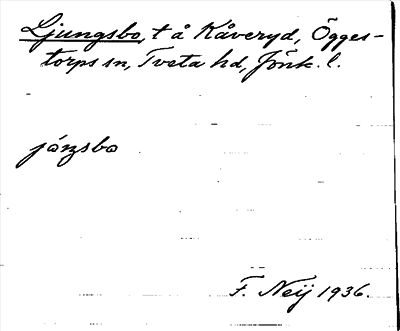 Ljungsbo, t å Kåveryd, Ögges-
torps sn, Tveta hd, Jönk. l.
jóŋsbo
F. Neij 1936.